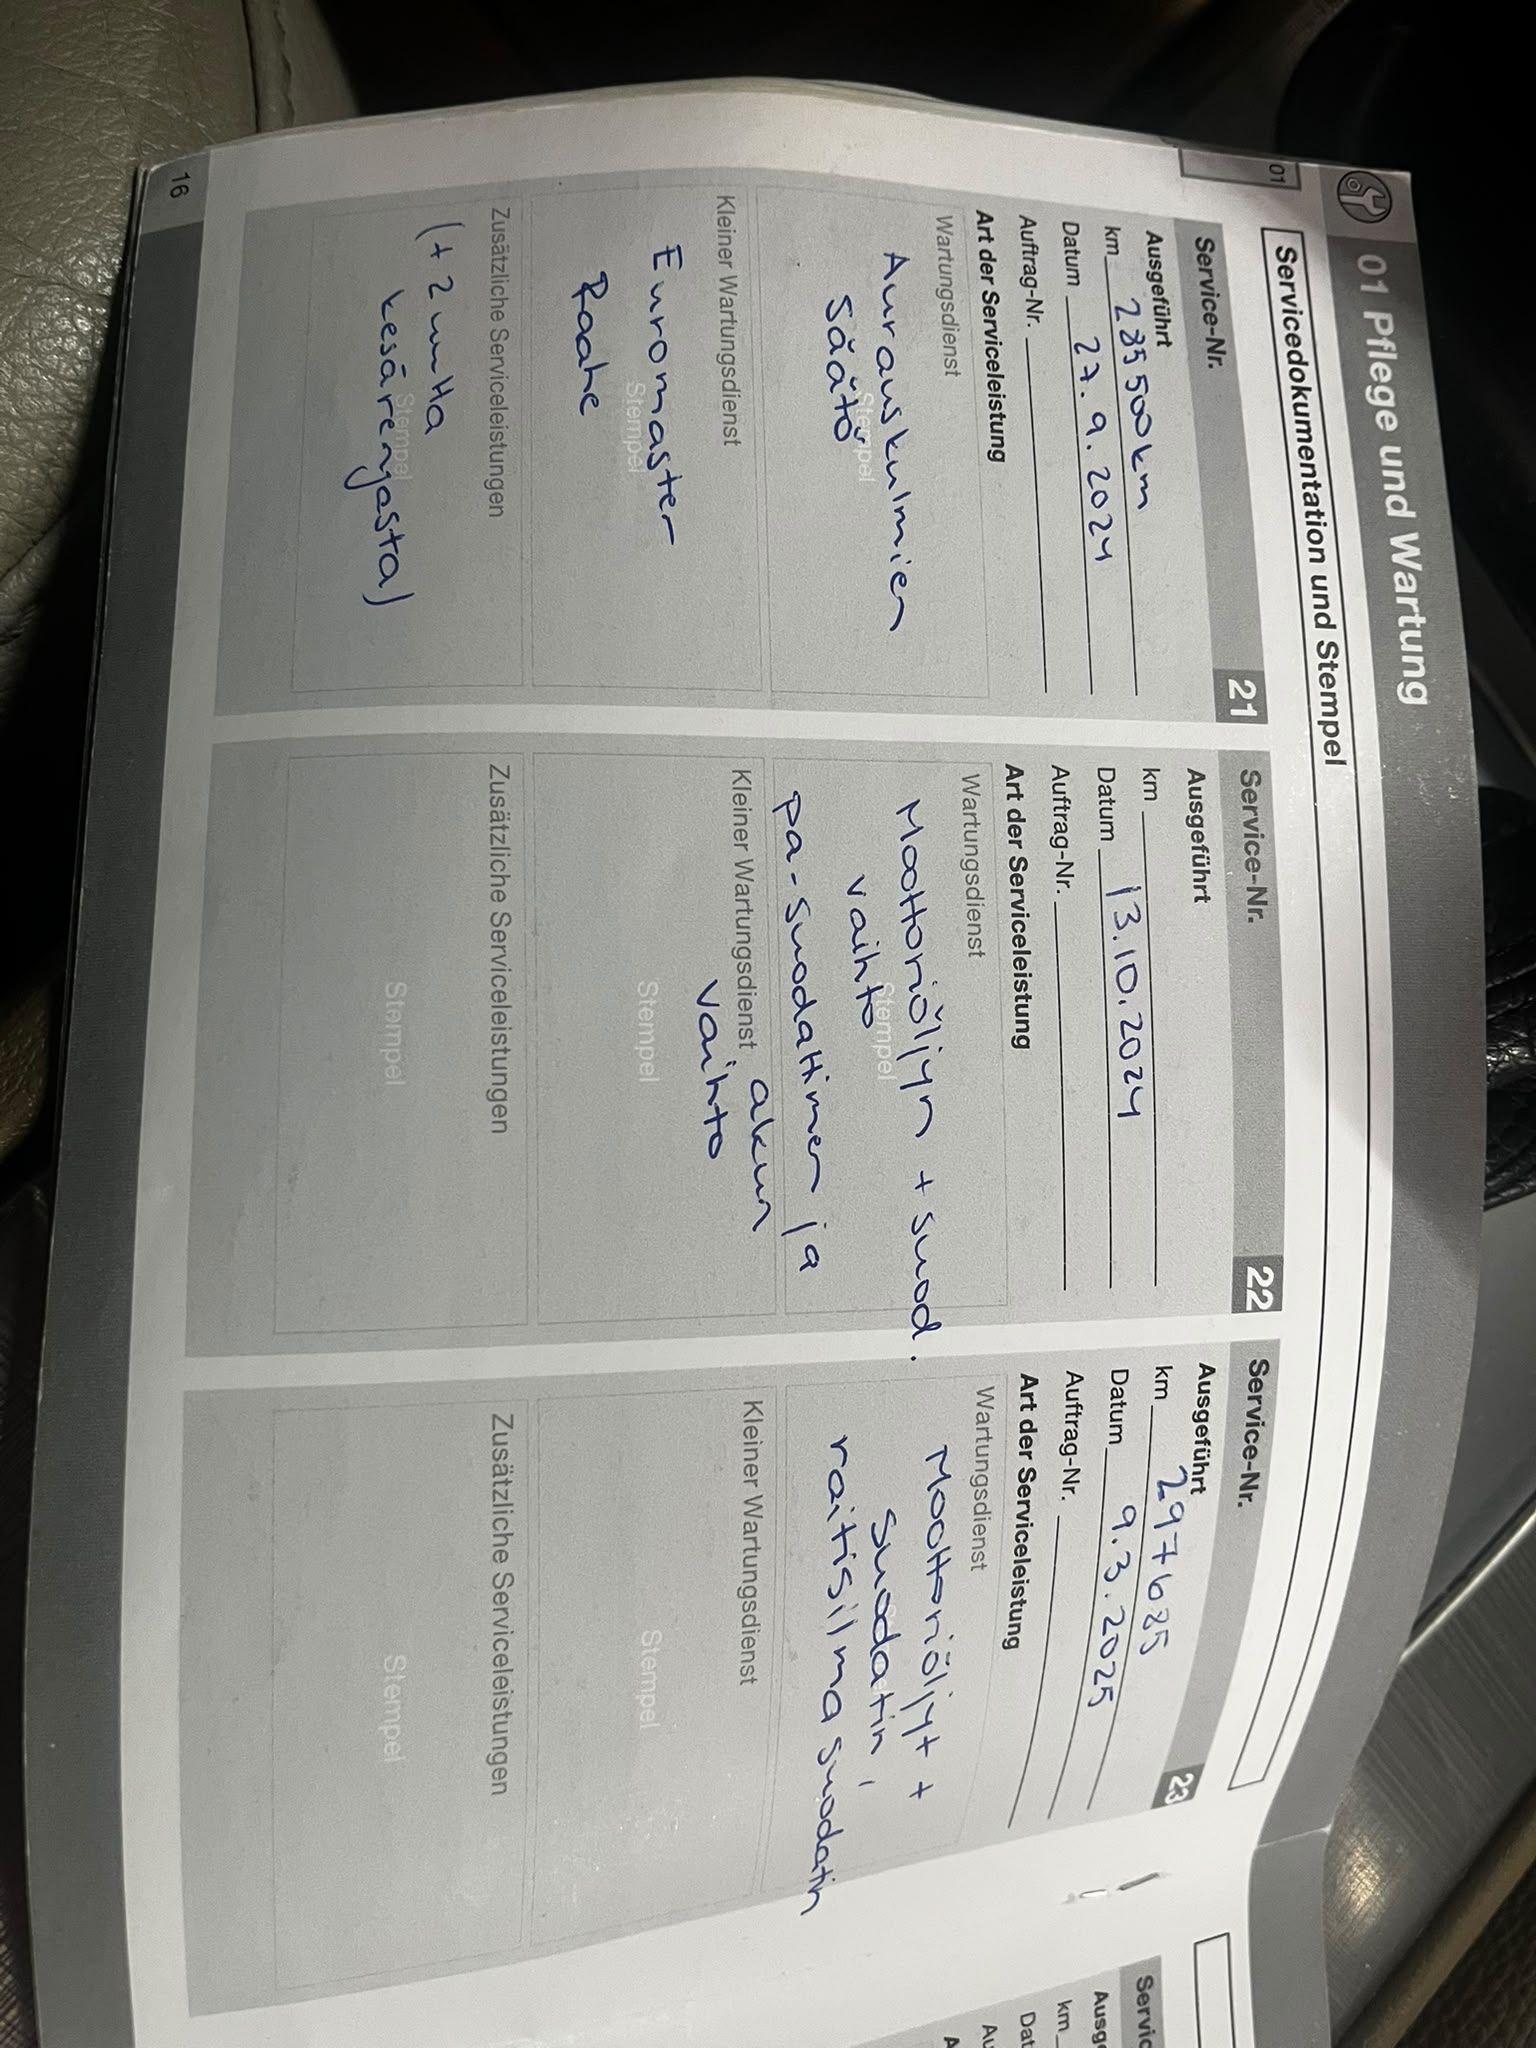 01 Pflege und Wartung
01
Servicedokumentation und Stempel
Service-Nr. 21
Ausgeführt
km 285 500km
Datum 27.9.2024
Auftrag-Nr.
Art der Serviceleistung
Wartungsdienst
Stempel
Aurauskulmien
säätö
Kleiner Wartungsdienst
Stempel
Euromaster
Raahe
Zusätzliche Serviceleistungen
Stempel
(+ 2 uutta
kesärengasta)
Service-Nr. 22
Ausgeführt
km
Datum 13.10.2024
Auftrag-Nr.
Art der Serviceleistung
Wartungsdienst
Stempel
Moottoriöljyn + suod.
vaihto
pa-suodattimen ja
Kleiner Wartungsdienst
akun
vaihto
Stempel
Zusätzliche Serviceleistungen
Stempel
Service-Nr. 23
Ausgeführt
km 297685
Datum 9.3.2025
Auftrag-Nr.
Art der Serviceleistung
Wartungsdienst
Moottoriöljyt +
suodatin,
raitisilmasuodatin
Kleiner Wartungsdienst
Stempel
Zusätzliche Serviceleistungen
Stempel
16
Servic
Ausg
km
Dat
Au
A